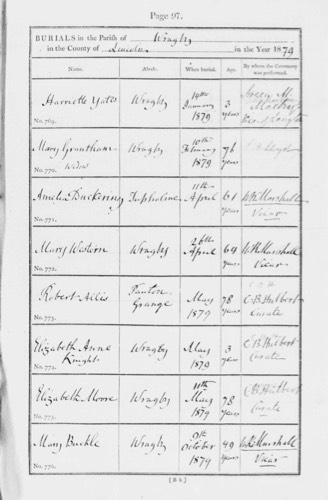 Page 97.
BURIALS in the Parish of Wragby
in the County of Lincoln in the Year 1879
Name. Abode. When buried. Age. By whom the Ceremony was performed.
Harriette Yates Wragby January 1879 3 years
No. 769.
Mary Grantham Widow Wragby 10th February 1879 76 years
No. 770.
Amelia Duckering Tupholme 11th April 61 years W. H. Marshall Vicar
No. 771.
Mary Western Wragby 26th April 69 years W. H. Marshall Vicar
No. 772.
Robert Allis Panton Grange May 1879 78 years C B Hulbert Curate
No. 773.
Elizabeth Anne Knight Wragby May 1879 3 years C B Hulbert Curate
No. 774.
Elizabeth Moore Wragby 11th May 1879 78 years C B Hulbert Curate
No. 775.
Mary Buckle Wragby 9th October 1879 49 years W. H. Marshall Vicar
No. 776.